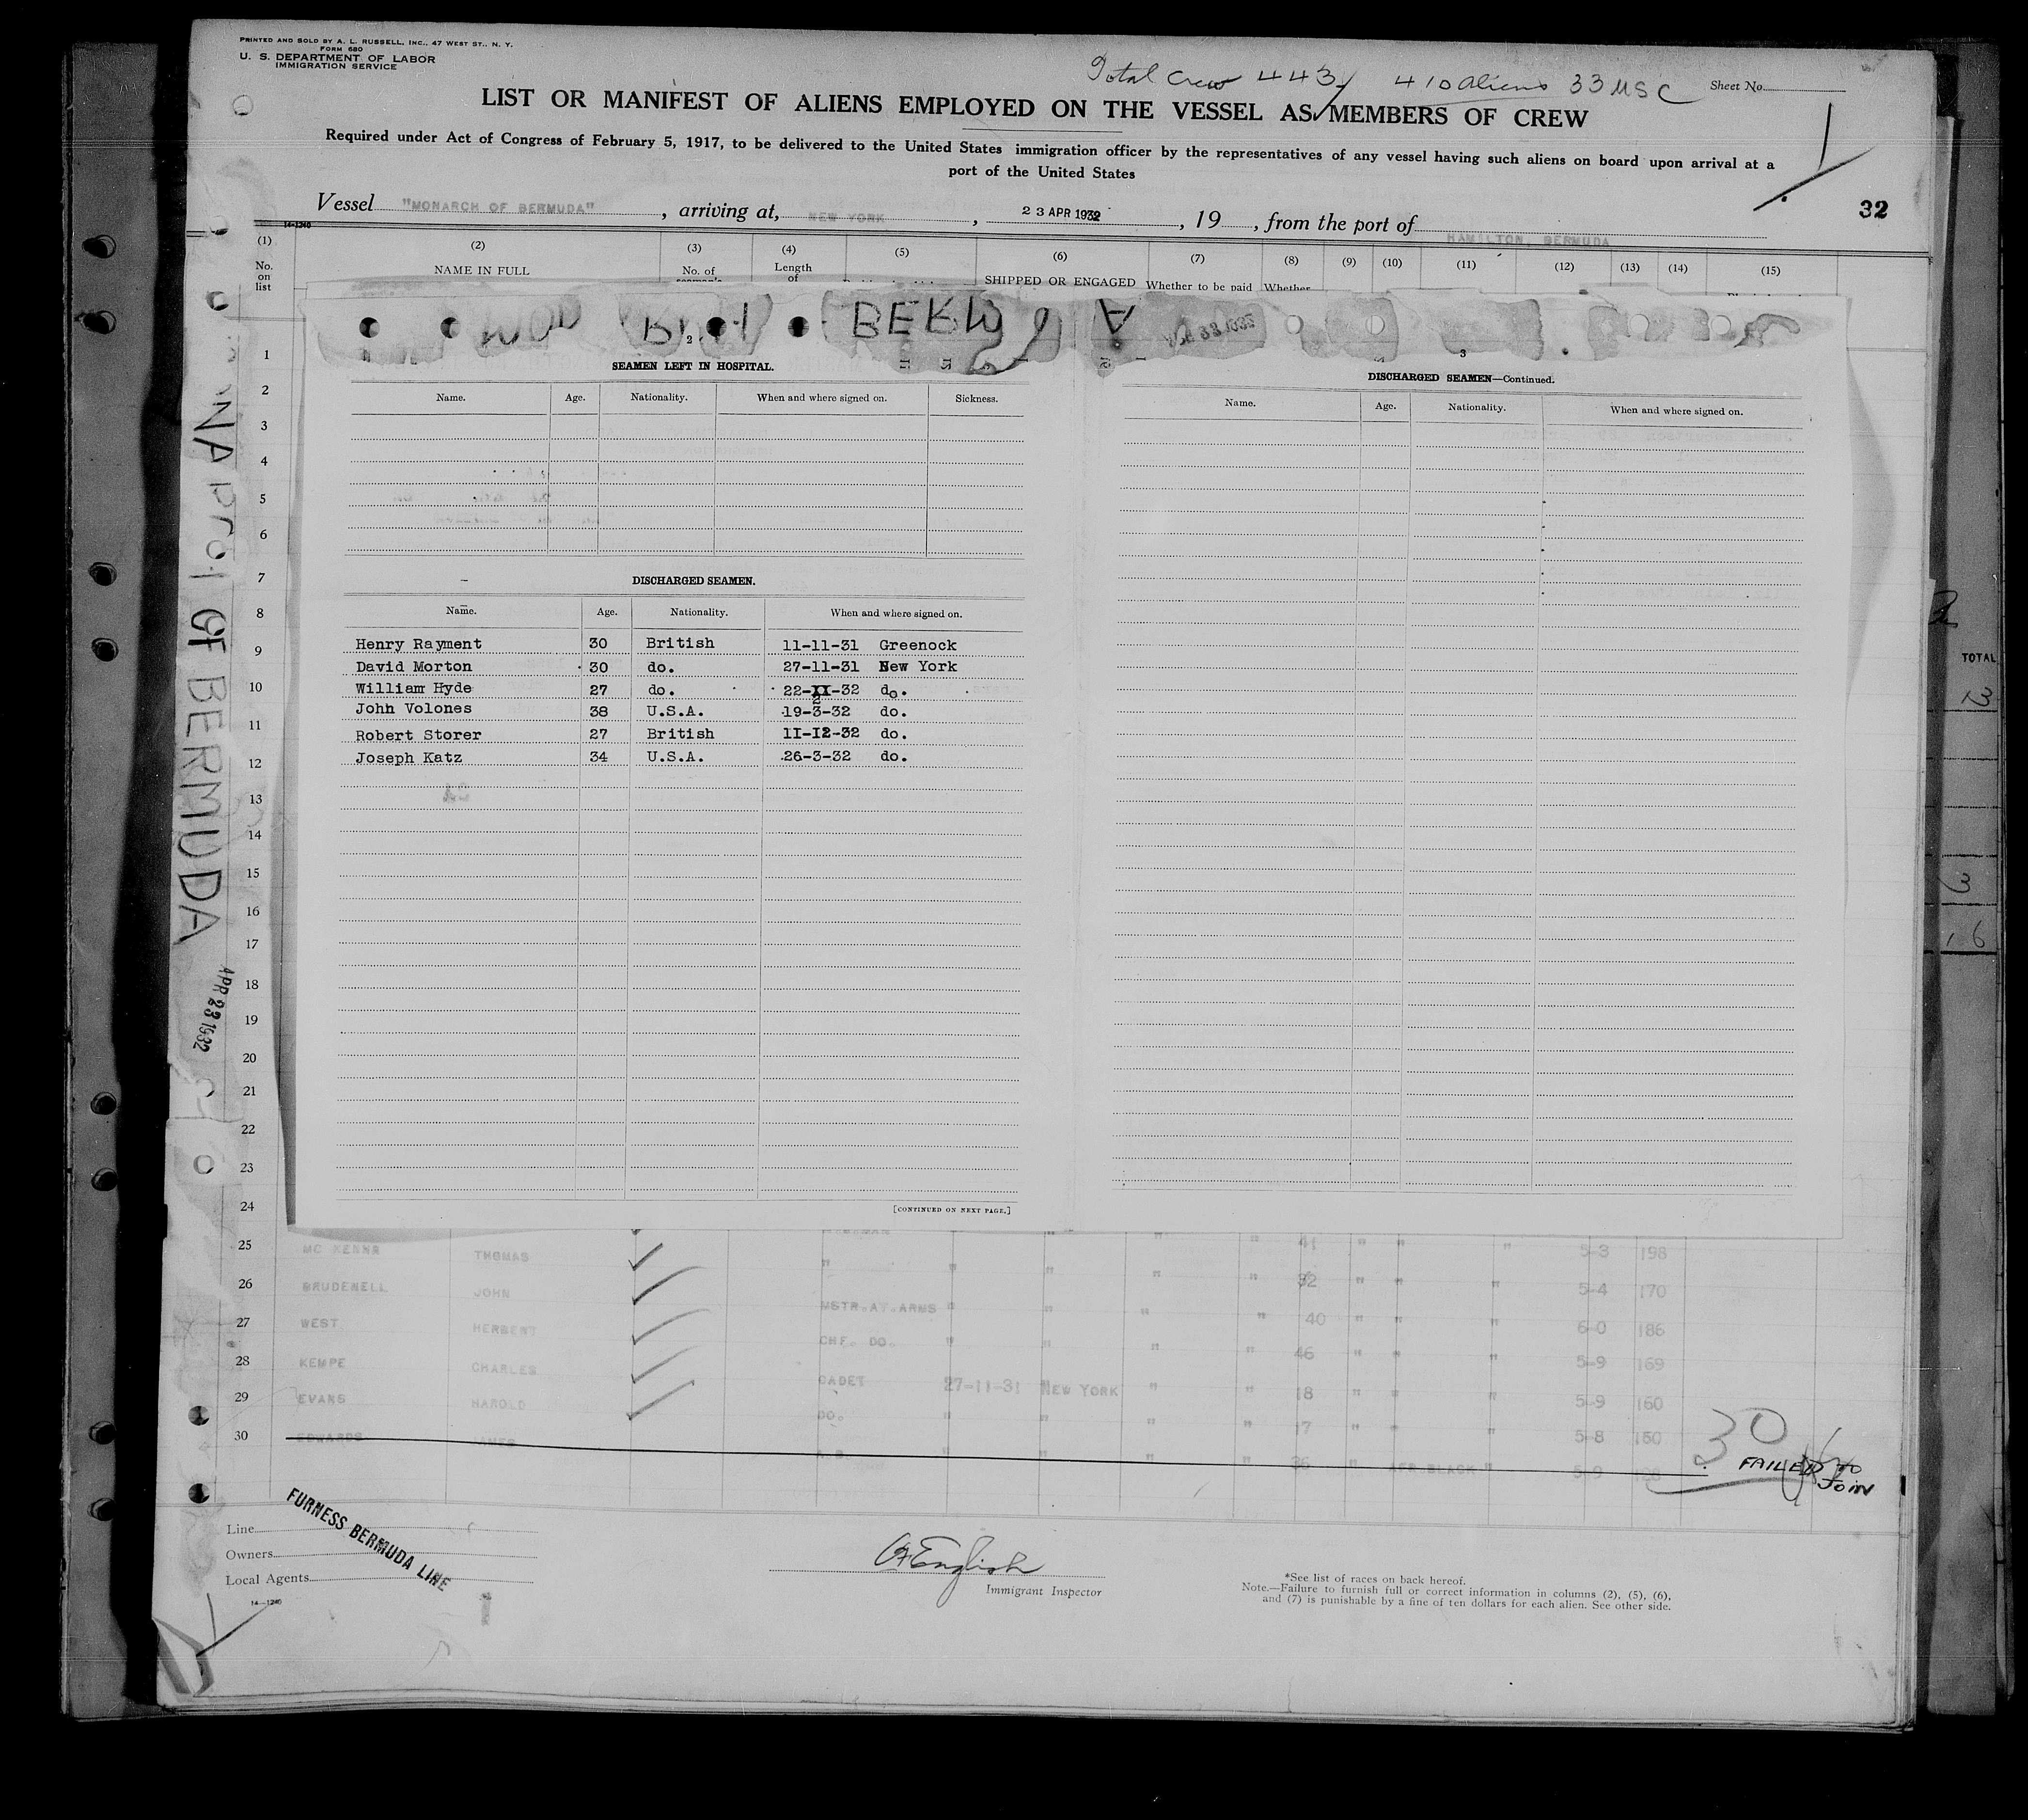 PRINTED AND SOLD BY A. L. RUSSELL, INC., 47 WEST ST., N. Y.
FORM 680
U. S. DEPARTMENT OF LABOR
IMMIGRATION SERVICE
Total Crew 443 / 410 aliens 33 USC
Sheet No.
LIST OR MANIFEST OF ALIENS EMPLOYED ON THE VESSEL AS MEMBERS OF CREW
Required under Act of Congress of February 5, 1917, to be delivered to the United States immigration officer by the representatives of any vessel having such aliens on board upon arrival at a
port of the United States
Vessel "MONARCH OF BERMUDA", arriving at, NEW YORK, 23 APR 1932, 19, from the port of HAMILTON, BERMUDA
32
14-1240
(1) (2) (3) (4) (5) (6) (7) (8) (9) (10) (11) (12) (13) (14) (15)
No. on list NAME IN FULL No. of Length of SHIPPED OR ENGAGED Whether to be paid Whether
2
3
SEAMEN LEFT IN HOSPITAL.
Name. Age. Nationality. When and where signed on. Sickness.
DISCHARGED SEAMEN.
Name. Age. Nationality. When and where signed on.
Henry Rayment 30 British 11-11-31 Greenock
David Morton 30 do. 27-11-31 New York
William Hyde 27 do. 22-2-32 do.
John Volones 38 U.S.A. 19-3-32 do.
Robert Storer 27 British 11-12-32 do.
Joseph Katz 34 U.S.A. 26-3-32 do.
[CONTINUED ON NEXT PAGE.]
DISCHARGED SEAMEN—Continued.
Name. Age. Nationality. When and where signed on.
1
2
3
4
5
6
7
8
9
10
11
12
13
14
15
16
17
18
19
20
21
22
23
24
25 MC KENNA THOMAS " " " " " 41 " " " 5-3 198
26 BRUDENELL JOHN " " " " " 32 " " " 5-4 170
27 WEST HERBERT MSTR.AT.ARMS " " " " 40 " " " 6-0 186
28 KEMPE CHARLES CHF. DO. " " " " 46 " " " 5-9 169
29 EVANS HAROLD CADET 27-11-31 NEW YORK " " 18 " " " 5-9 160
30 EDWARDS JAMES DO. " " " " 17 " " " 5-8 150
A.B. " " " " 36 " AFR.BLACK " 5-9
30
FAILED TO JOIN
OF BERMUDA
APR 23 1932
TOTAL
13
3
16
Line
Owners
Local Agents
FURNESS BERMUDA LINE
14-1240
1
English
Immigrant Inspector
*See list of races on back hereof.
Note.—Failure to furnish full or correct information in columns (2), (5), (6),
and (7) is punishable by a fine of ten dollars for each alien. See other side.